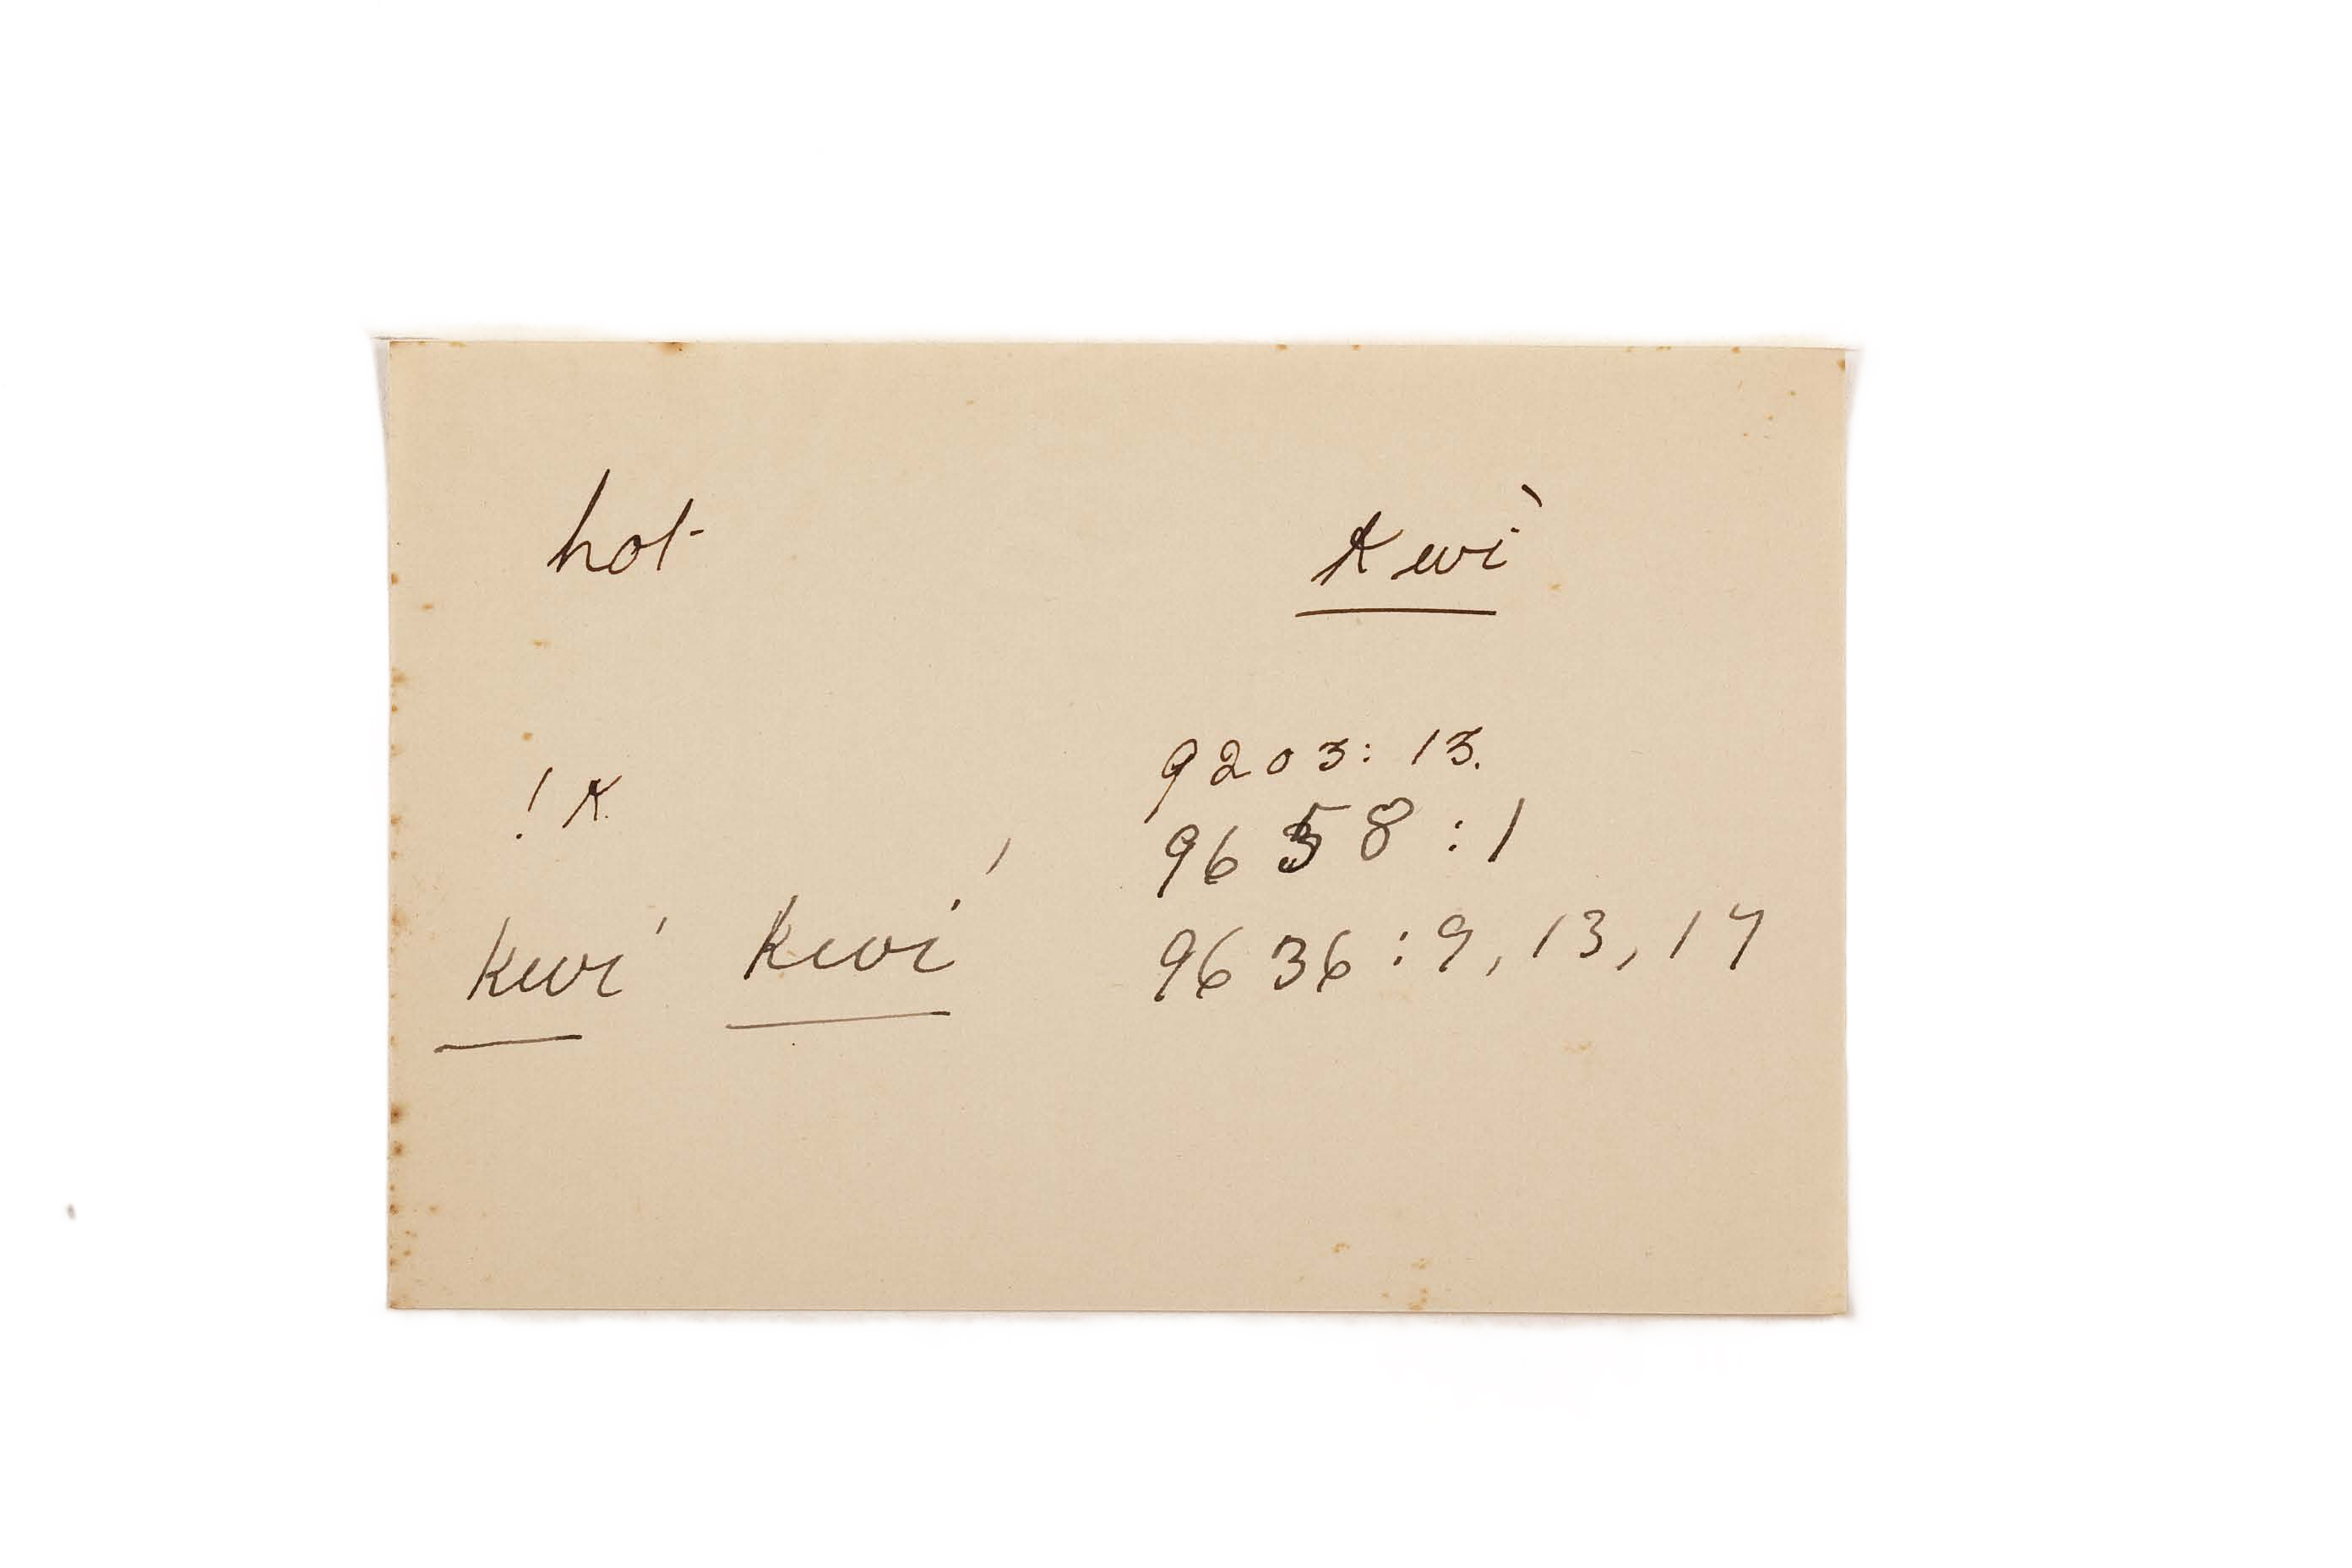 hot kwì
9203: 13.
! k. 9658 : 1
kwi' kwi' 9636 : 9, 13, 17